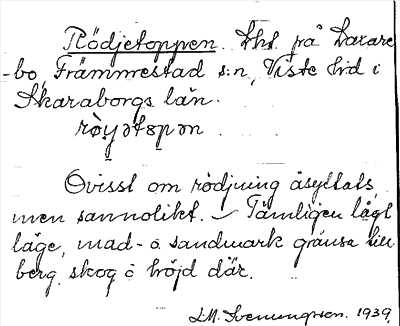 Rödjetoppen. Lht. på Larare-
bo, Främmestad s:n, Viste hd i
Skaraborgs län.
röyətopən
Ovisst om rödjning åsyftats,
men sannolikt. – Tämligen lågt
läge, mad- o sandmark gränsa till
berg, skog o höjd där.
J.M. Svenungsson. 1939.